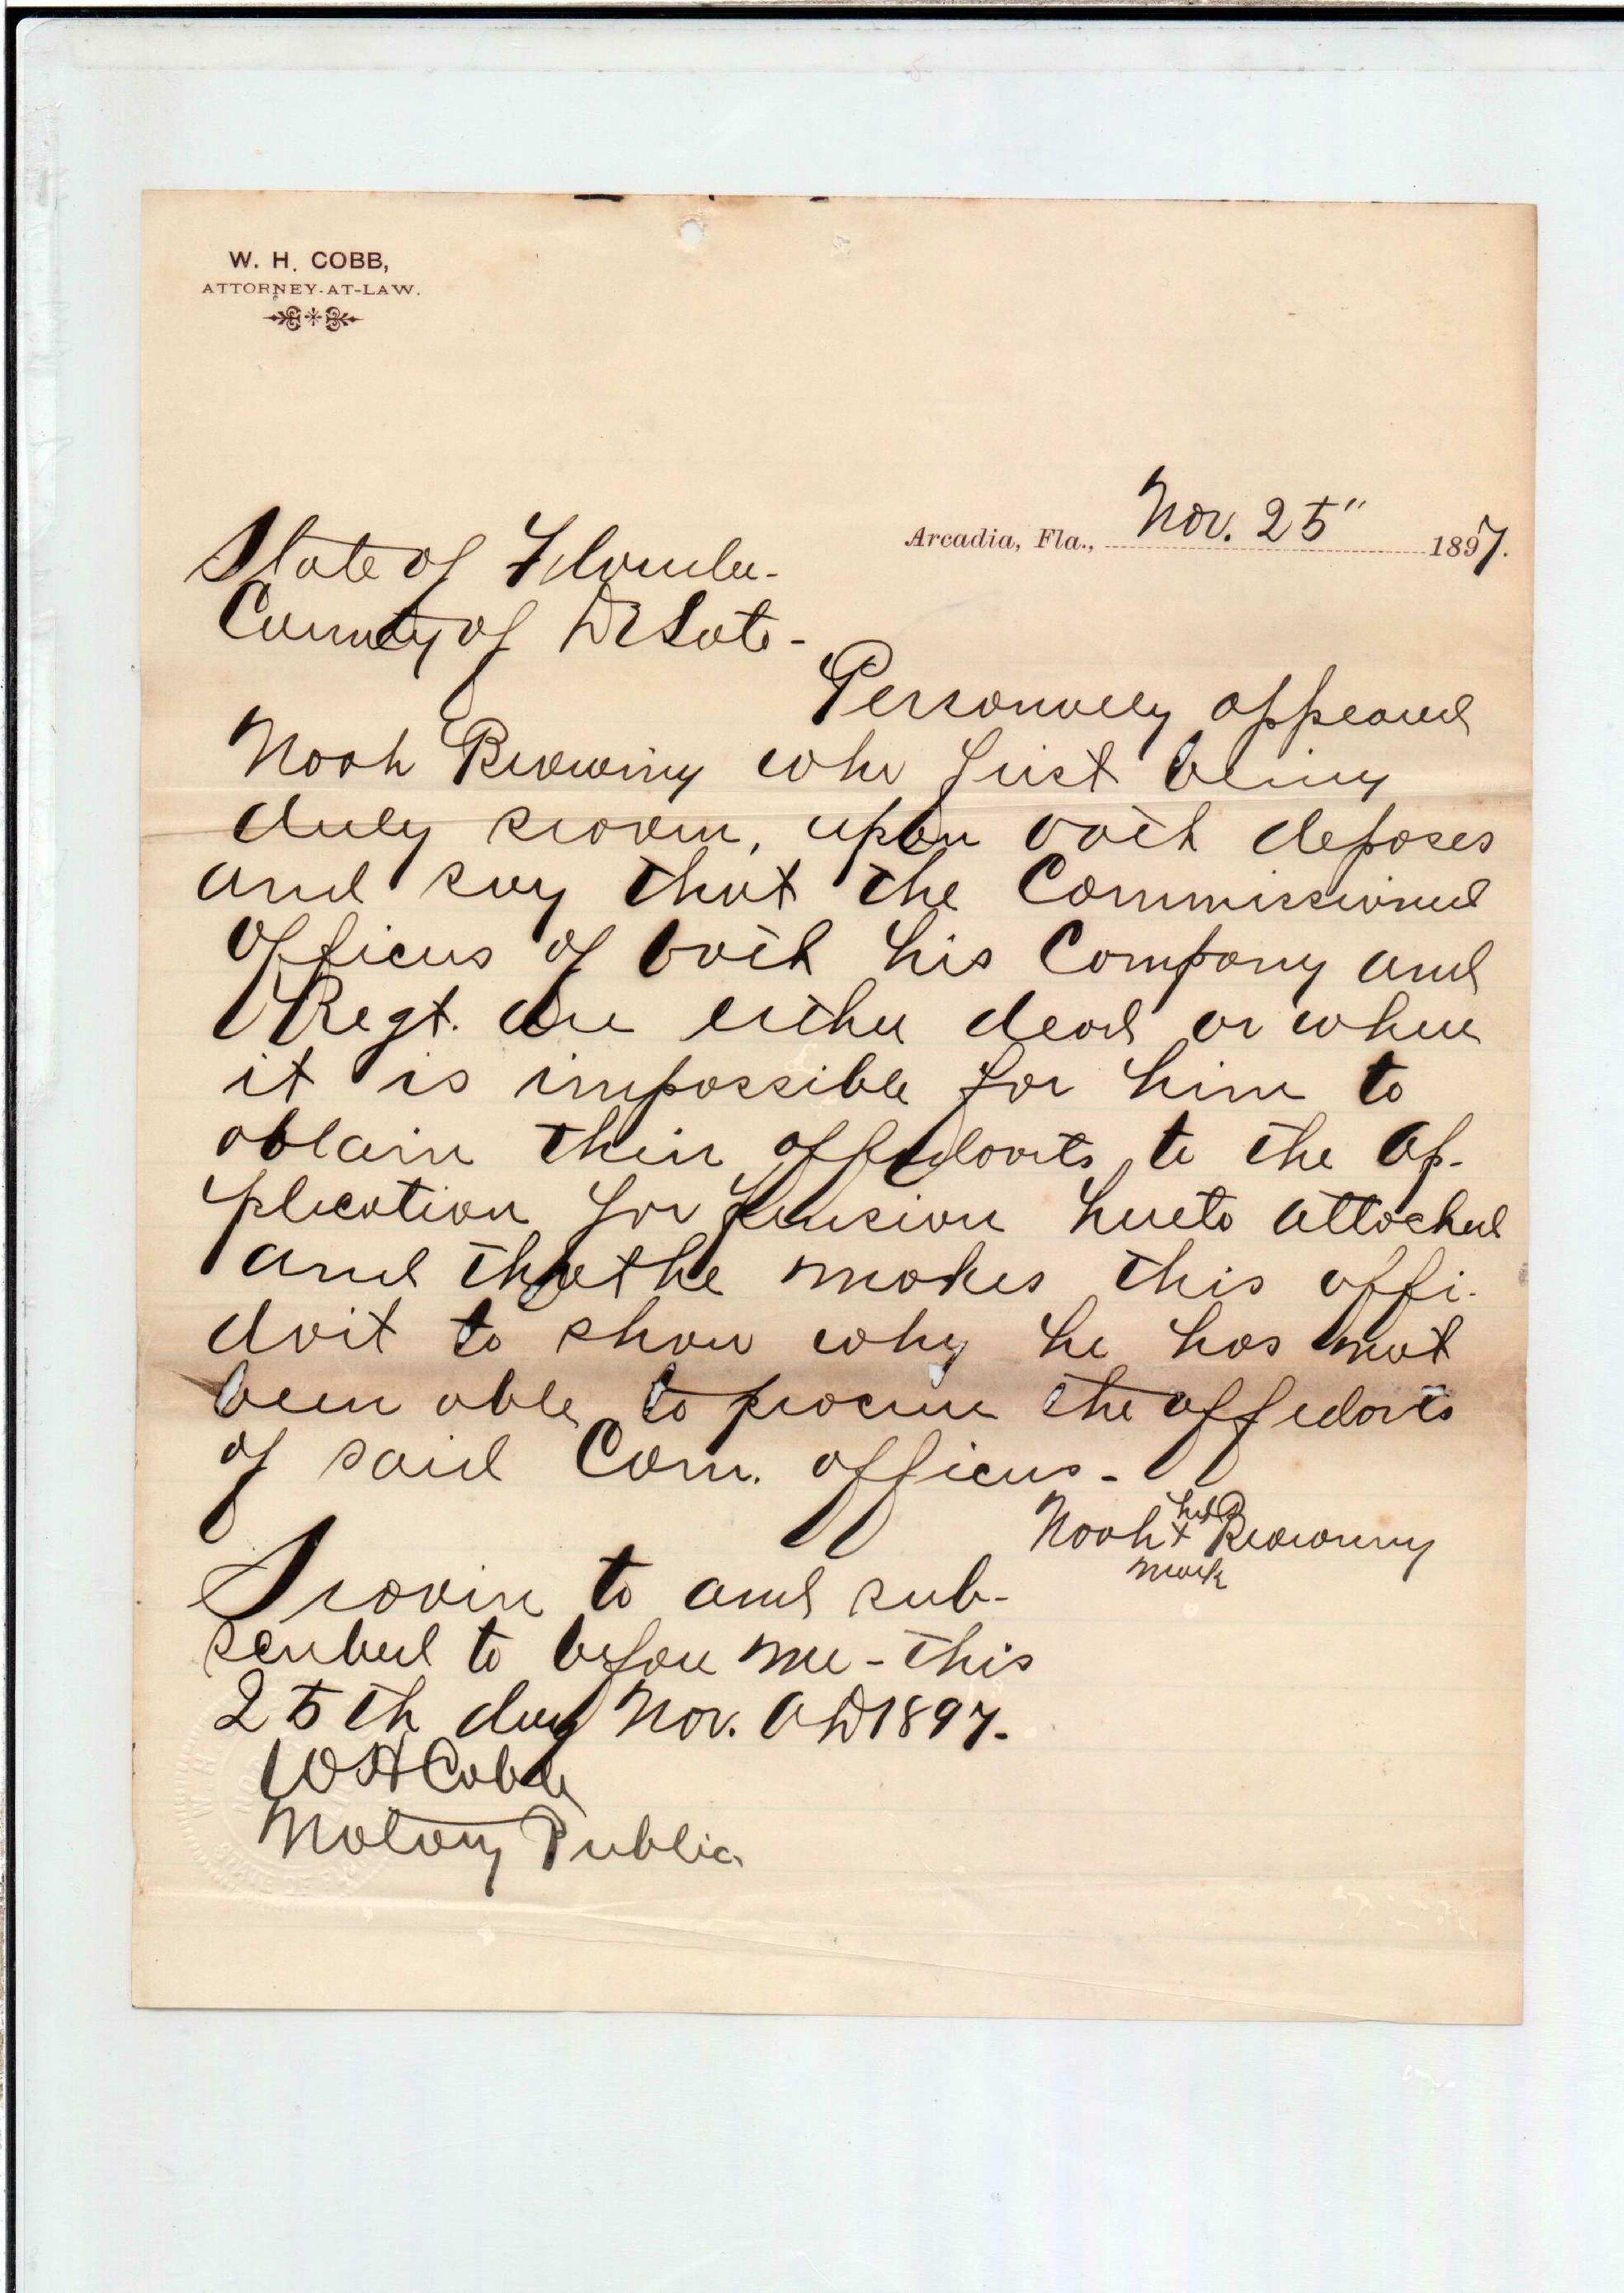 W. H. COBB,
ATTORNEY-AT-LAW.
Arcadia, Fla., Nov. 25" 1897.
State of Florida -
County of DeSoto -
Personally appeared
Noah Browning who first being
duly sworn, upon oath deposes
and say that the Commissioned
officers of both his Company and
Regt. are either dead or where
it is impossible for him to
obtain their affidavits to the ap-
plication for pension hereto attached
and that he makes this affi-
davit to show why he has not
been able to procure the affidavits
of said Com. officers -
Noah his x Browning
mark
Sworn to and sub-
scribed to before me - this
25th day Nov. AD 1897.
W H Cobb
Notary Public